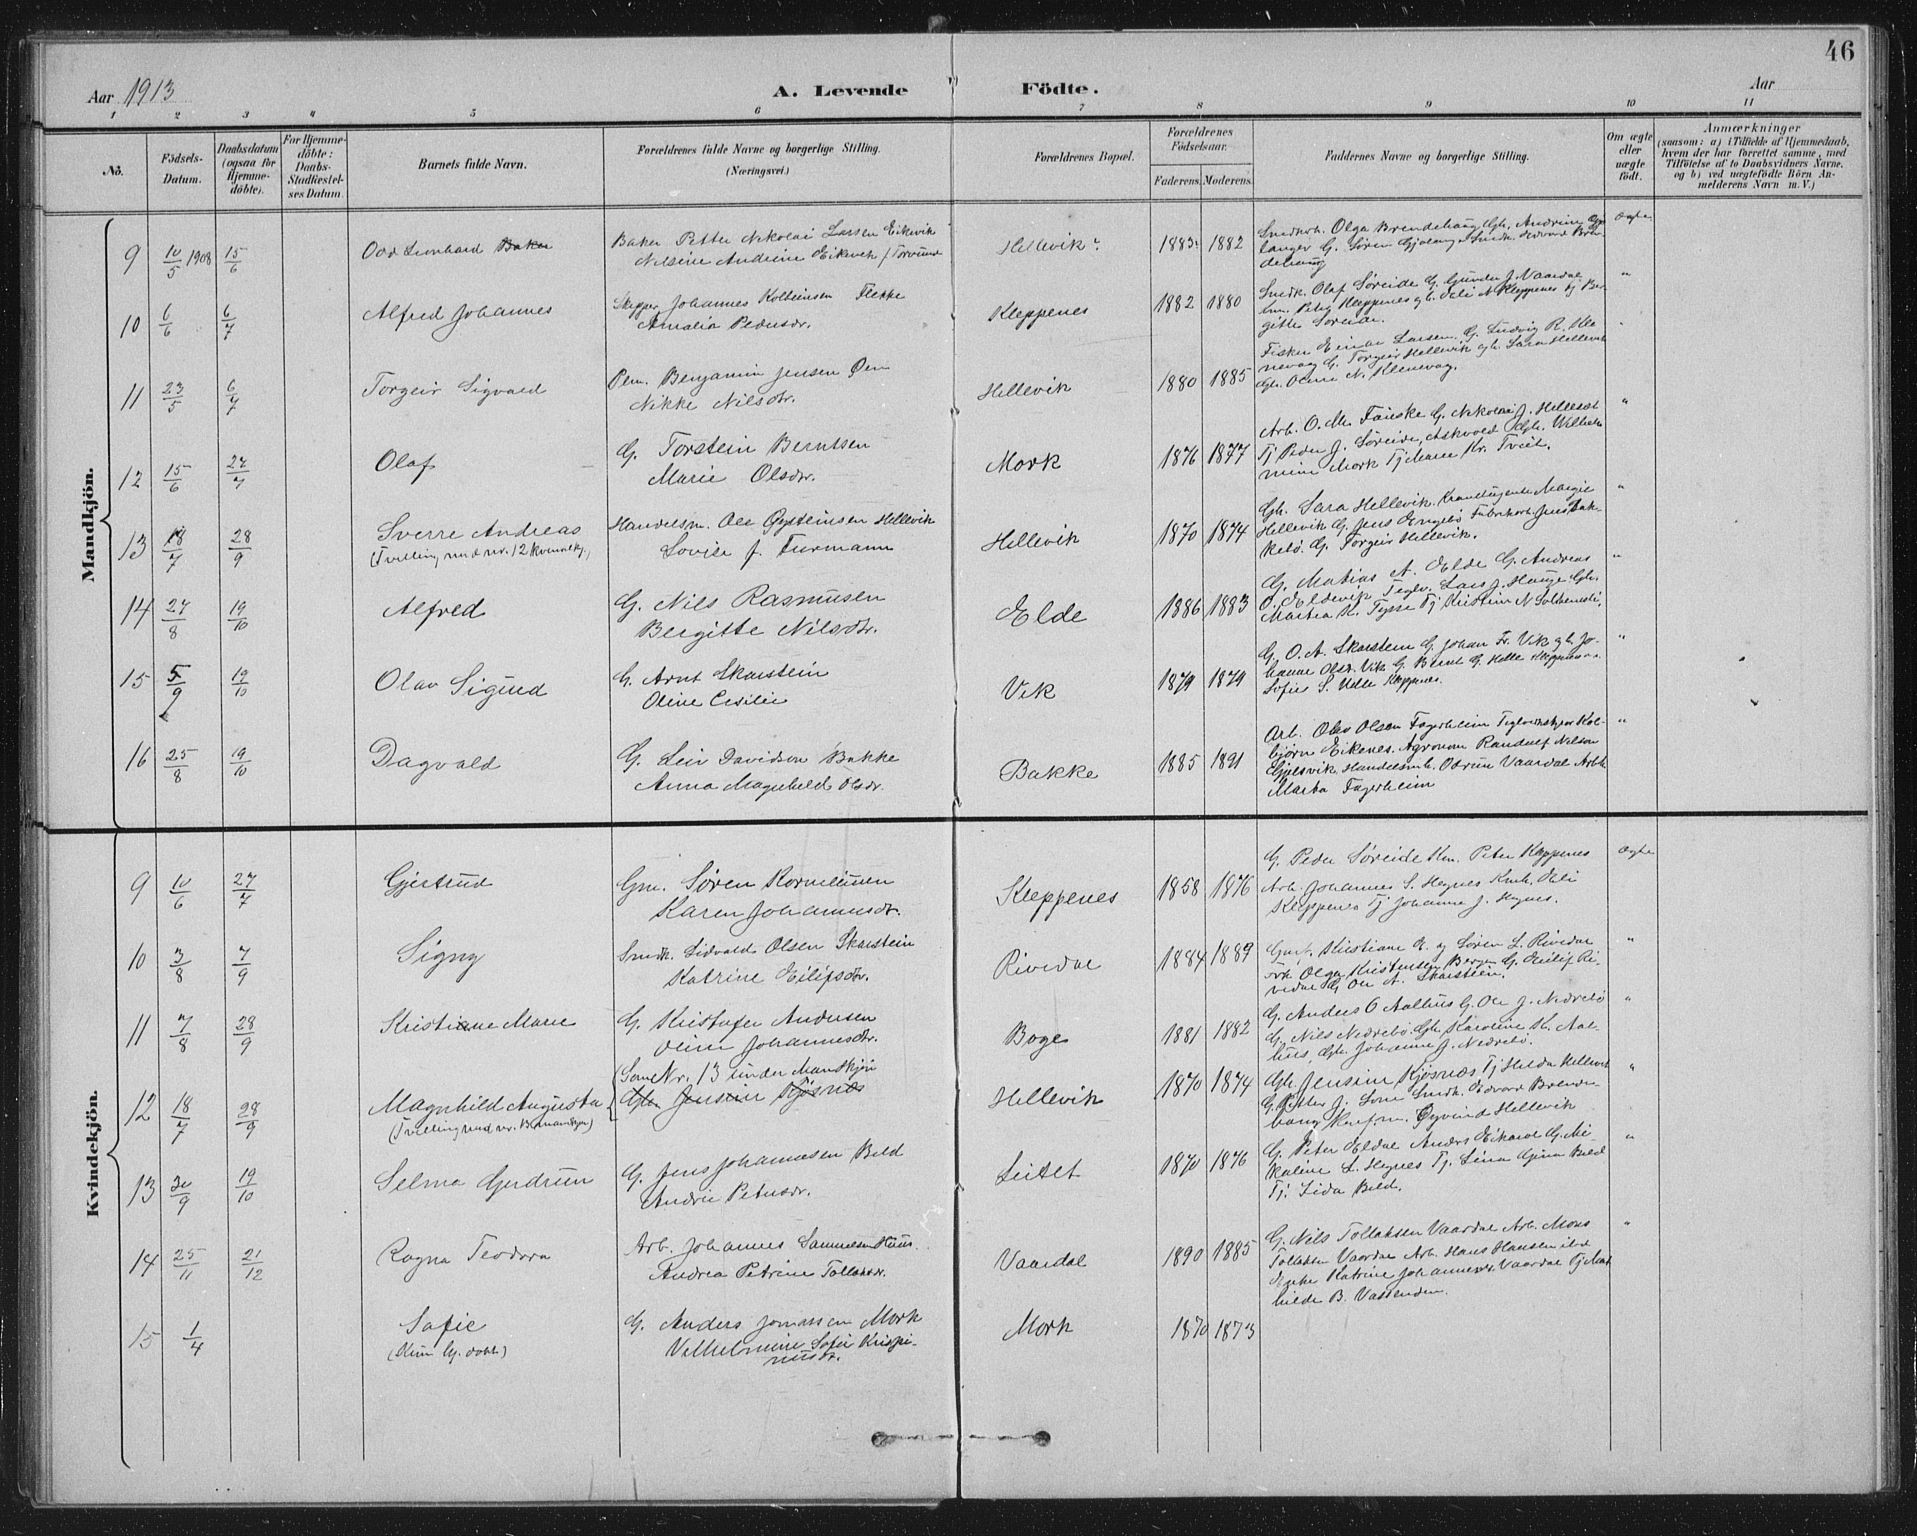 46
Aar 1913
A. Levende Födte.
Aar
1 2 3 4 5 6 7 8 9 10 11
No.
Födsels-Datum.
Daabsdatum (ogsaa for Hjemme-döbte).
For Hjemme-döbte: Daabs-Stadfæstel-ses Datum
Barnets fulde Navn.
Forældrenes fulde Navne og borgerlige Stilling.
(Næringsvei.)
Forældrenes Bopæl.
Forældrenes Födselsaar.
Faderens. Moderens.
Faddernes Navne og borgerlige Stilling.
Om ægte eller uægte födt.
Anmærkninger
(saasom: a) i Tilfælde af Hjemmedaab, hvem der har forrettet samme, med Tilföielse af to Daabsvidners Navne, og b) ved uægtefödte Börn An-melderens Navn m. V.)
Mandkjön.
9 10/5 1908 15/6 Odd Leonhard Baker
Baker Petter Nikolai Larsen Eikevik
Nilsine Andrine Eikevik f Torvund
Hellevik 1883 1882
Smedkh. Olga Brendehaug Gh. Andrine Gjø
langer G. Søren Gjølanger Smedk. Edvard Bren
dehaug
Ægte
10 6/6 6/7 Alfred Johannes
Skipper Johannes Kolbeinsen Flekke
Amalia Pedersdr.
Kleppenes 1882 1880
Smedk. Olaf Søreide G. Gunder J. Vaardal
Peter Kleppenes gh. Kleppenes Tj Ber
gitte Søreide.
"
11 23/5 6/7 Torgeir Sigvald
Benjamin Jensen Øen
Nikke Nilsdtr.
Hellevik 1880 1885
Fisker Einar Larsen. G. Ludvig R. Kle
nevag G. Torgeir Hellevik gh. Sara Hellevik
Gh. N. Klenevag.
"
12 15/6 27/7 Olaf
G. Torstein Berntsen
Marie Olsdtr.
Mork 1876 1877
Arb. O. M. Fauske G. Nikolai J. Hellesæt
Tj Peder J. Søreide, Askvold Gh. Wilhel
mine Mork Tj Marie Kr. Tveit.
"
13 18/7 28/9 Sverre Andreas
(Tvilling med nr. 12 kvindekj.)
Handelsm. Ole Øysteinsen Hellevik
Lovise f. Furmann
Hellevik 1870 1874
Gh. Sara Hellevik. Margit
Hellevik G. Jens Engebø Fabrikarb. Jens Bak-
kebø. G. Torgeir Hellevik.
"
14 27/8 19/10 Alfred
G. Nils Rasmusen
Bergitte Nilsdtr.
Elde 1886 1883
G. Matias A. Elde G. Andreas
O. Eldevik Lars J. Hauge Gh.
Martha K. Tysse Tj Kristin N
"
15 5/9 19/10 Olav Sigurd
G. Arnt Skarstein
Oline Cesilie
Vik 1879 1879
G. O. A. Skarstein G. Johan Fr. Vik gh. Jo-
hanne Olsdr. Vik G. Bernt G. Helle Kleppenes
Sofie S. Helle Kleppenes.
"
16 25/8 19/10 Dagvald
G. Leiv Davidson Bakke
Anna Magnhild Olsdr.
Bakke 1885 1891
Arb. Olav Olsen Fagerheim Teglverksbestyrer Kol-
bjørn Eikenes. Agronom Randulf Nilsen
Gjelsvik Handelsmh. Odrun Vaardal Arbh
Marta Fagerheim
"
Kvindekjön.
9 10/6 27/7 Gjertrud
Gm. Søren Korneliussen
Karen Johannesdr.
Kleppenes 1858 1876
G. Peder Søreide Km. Peter Kleppenes
Arb. Johannes S. Høgnes Kmh.
Kleppenes Tj Johanne J. Høgnes.
Ægte
10 3/8 7/9 Signy
Smedk. Sidvald Olsen Skarstein
Katrine Eilifsdr.
Rivedal 1884 1889
Kristiane E. og Søren L. Rivedal
Frk Olga Kristensen Bergen G. Eilif Ri-
vedal G. Ole A. Skarstein.
"
11 7/8 28/9 Kristiane Marie
G. Kristofer Andersen
Oline Johannesdtr.
Boge 1881 1882
G. Anders O Aalhus G. Ole J. Nedrebø
G. Nils Nedrebø. Gh. Karoline K. Aal-
hus, Gh. Johanne J. Nedrebø.
"
12 18/7 28/9 Magnhild Augusta
(Tvilling med nr. 13 mandkjøn)
Som Nr. 13 under Mandkjøn
Gh. Jensine Kjøsnæs
Hellevik 1870 1874
Gh. Jensine Kjøsnæs Tj Hilda Hellevik
G. Petter J. Smedk. Edvard Brende-
haug Øyvind Hellevik
"
13 30/9 19/10 Selma Gudrun
G. Jens Johannesen Beld
Andrie Petersdr.
Leitet 1870 1876
G. Peter Eldal Anders Eikerol G. Mi-
kaline L. Høgnes Tj. Lina Gina Beld
Tj. Lida Beld.
"
14 25/11 21/12 Ragna Teodora
Arb. Johannes Samuelsen Huus.
Andrea Petrine Tollaksdr.
Vaardal 1890 1885
G. Nils Tollaksen Vaardal Arb. Mons
Tollaksen Vaardal Arb. Hans Hansen ibd
Enke Katrine Johannesdr. Vaardal Tj Mat
hilde B. Vassenden.
"
15 1/4 Sofie
(Kun hj. døbt)
G. Anders Jonassen Mork
Vilhelmine Sofie Krispi-
nusdr.
Mork 1870 1873